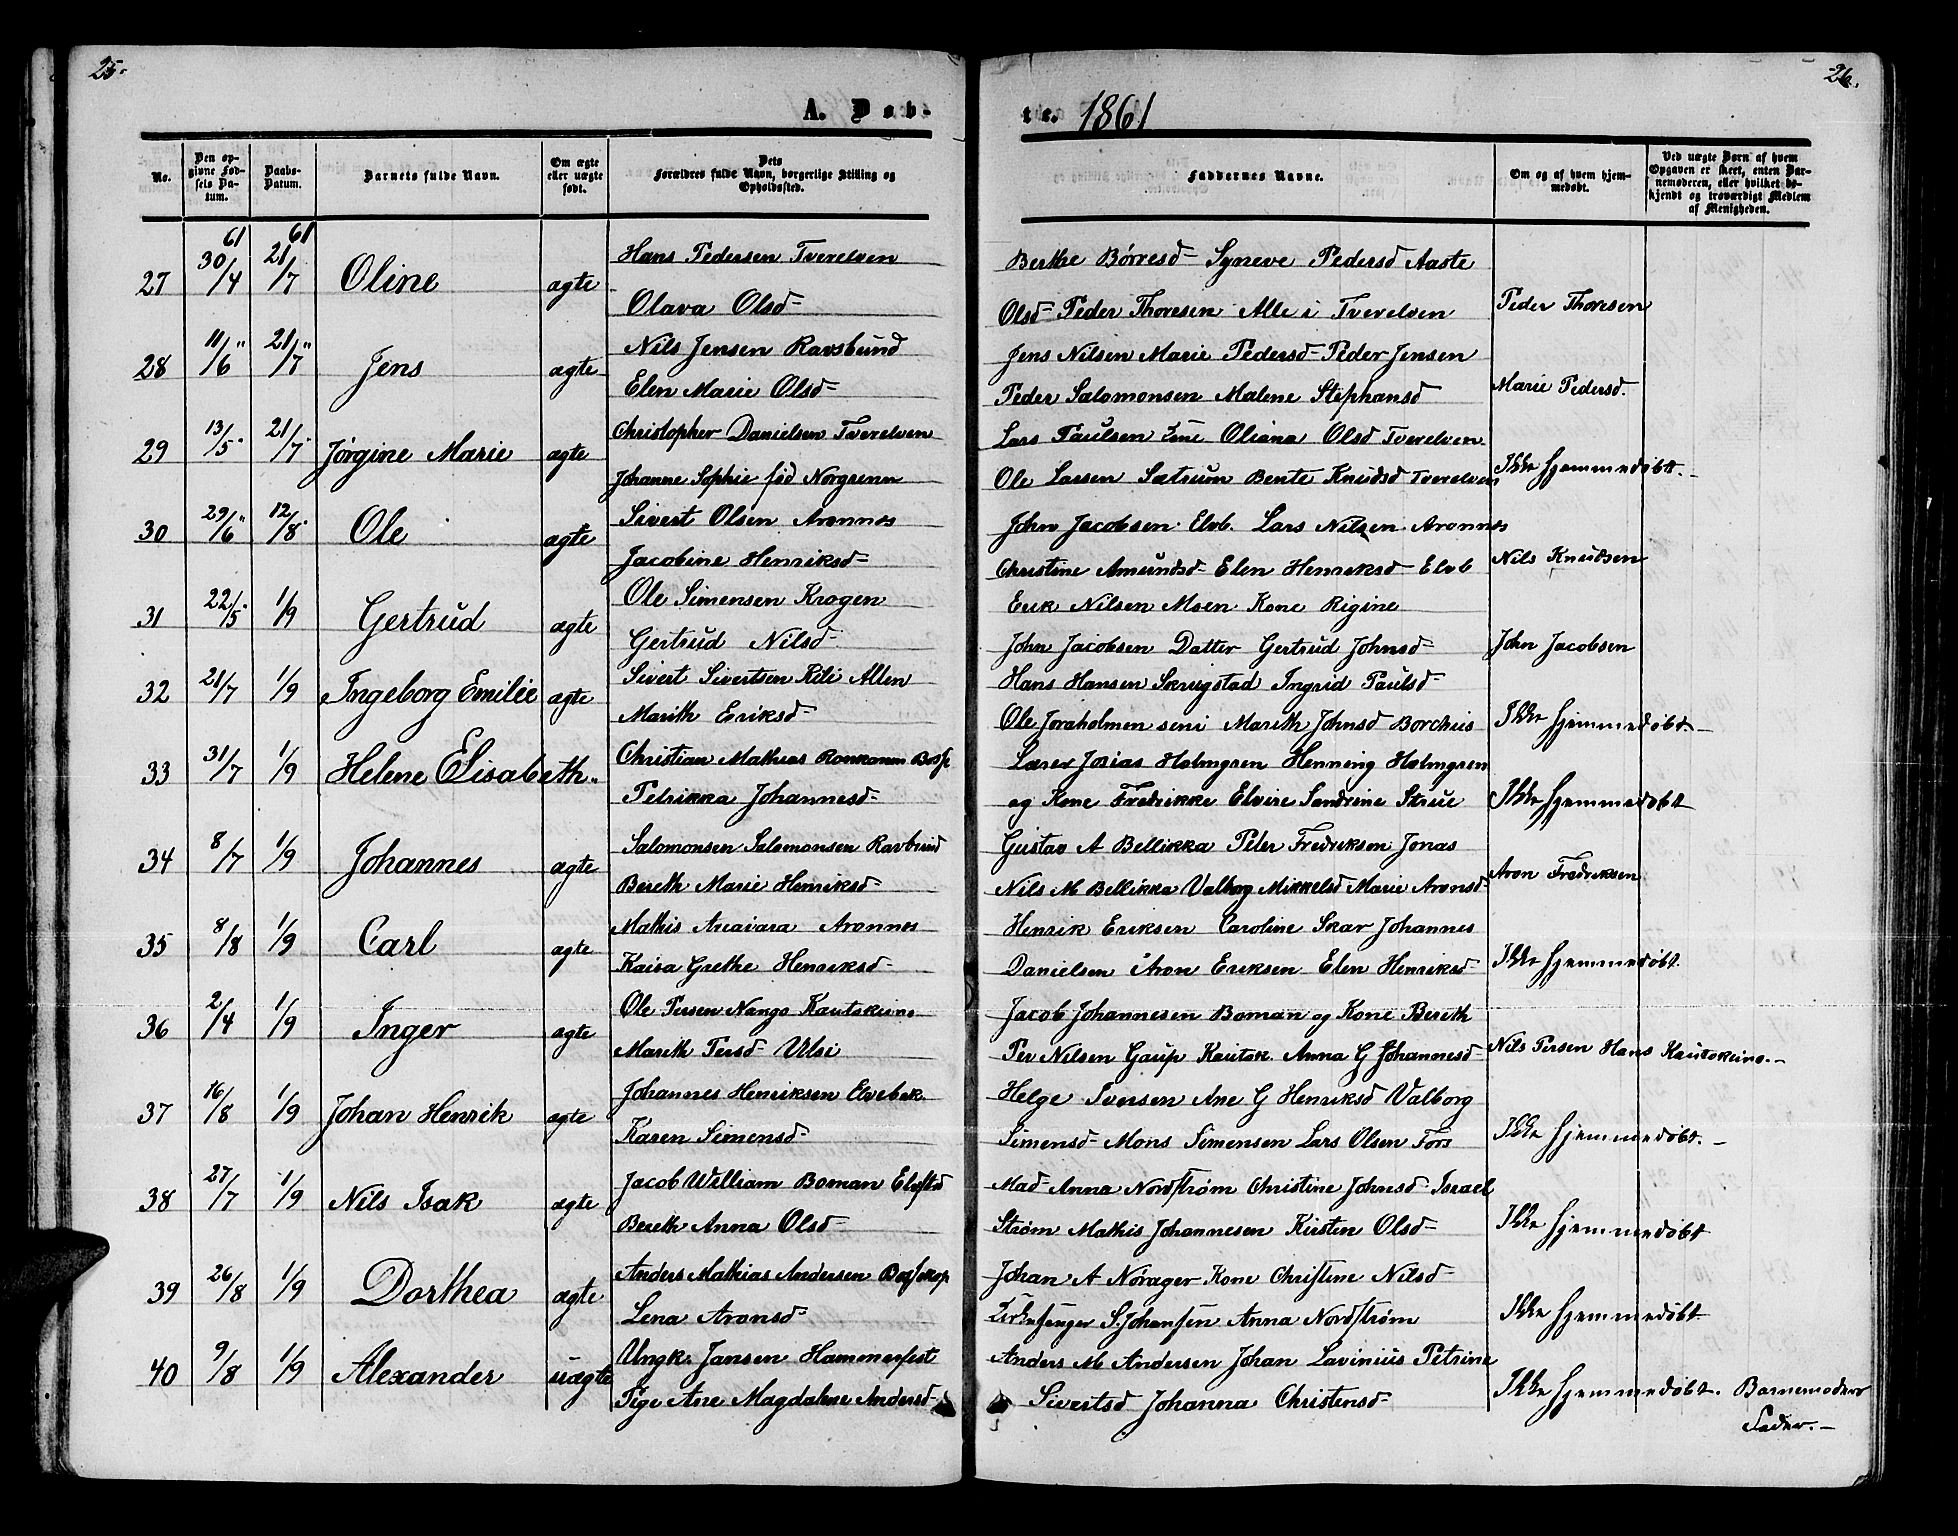 25.
26.
A. Døb-
te. 1861
No.
Den opgivne Fødsels Datum.
Daabs-Datum.
Barnets fulde Navn.
Om ægte eller uægte født.
Dets Forældres fulde Navn, borgerlige Stilling og Opholdssted.
Faddernes Navne.
Om og af hvem hjemmedøbt.
Ved uægte Børn af hvem Opgaven er skeet, enten Barnemoderen, eller hvilket bekjendt og troværdigt Medlem af Menigheden.
27 30/4 61 21/7 61 Oline ægte Hans Pedersen Tverelven Berthe Børresd- Syneve Pedersd Aaste
Olava Olsd- Olsd- Peder Thoresen Alle i Tverelven Peder Thoresen
28 11/6 " 21/7 " Jens ægte Nils Jensen Ravsbund Jens Nilsen Marie Pedersd- Peder Jensen
Elen Marie Olsd- Peder Salomonsen Malene Stephansd Marie Pedersd.
29 13/5 " 21/7 " Jørgine Marie ægte Christopher Danielsen Tverelven Lars Paulsen Oliana Olsd Tverelven
Johanne Sophie fød Norgrenn Ole Larsen Sætrum Bente Knudsd Tverelven Ikke hjemmedøbt.-
30 29/6 " 12/8 " Ole ægte Sivert Olsen Aronnes John Jacobsen Elvb. Lars Nilsen Aronnes
Jacobine Henriksd- Christine Amundsd- Elen Henriksd Elvb Nils Knudsen
31 22/5 " 1/9 Gertrud ægte Ole Simensen Krogen Erik Nilsen Moen Kone Rigine
Gertrud Nilsd- John Jacobsen Datter Gertrud Johnsd- John Jacobsen
32 21/7 1/9 Ingeborg Emilie ægte Sivert Sivertsen Alten Hans Hansen Skrugstad Ingrid Paulsd-
Marith Eriksd- Ole Joraholmen seni Marith Johnsd Borchus Ikke hjemmedøbt.-
33 31/7 1/9 Helene Elisabeth. Christian Mathias Ronkanen Bossp Lærer Josias Holmgren Henning Holmgren
Petrikka Johannesd- og Kone Fredrikke Elvire Sandrine Strue Ikke hjemmedøbt
34 8/7 1/9 Johannes ægte Salomonsen Salomonsen Ravbund Gustav A Bellikka Peter Fredriksen Jonas
Bereth Marie Henriksd- Nils M Bellikka Valborg Mikkelsd Marie Aronsd- Aron Fredriksen
35 8/8 1/9 Carl ægte Mathis Aronnes Henrik Eriksen Caroline Skar Johannes
Kaisa Grethe Henriksd- Danielsen Aron Eriksen Elen Henriksd- Ikke hjemmedøbt.
36 2/4 1/9 Inger ægte Ole Persen Nango Kautokeino Jacob Johannesen Boman og Kone Bereth
Marith Persd- Utsi Per Nilsen Gaup Kautok. Anna G Johannesd- Nils Persen Hans Kautokeino.-
37 16/8 1/9 Johan Henrik ægte Johannes Henriksen Elvebak. Helge Iversen Ane G Henriksd Valborg
Karen Simensd- Simensd- Mons Simensen Lars Olsen Fors Ikke hjemmedøbt.-
38 27/7 1/9 Nils Isak ægte Jacob William Boman Elvstd Mad- Anna Nordstrøm Christine Johnsd- Israel
Bereth Anna Olsd- Strøm Mathis Johannesen Kirsten Olsd- Ikke hjemmedøbt
39 26/8 1/9 Dorthea ægte Anders Mathias Andersen Bossekop Johan A Norager Kone Christine Nilsd-
Lena Aronsd- Kirkesanger S. Johansen Anna Nordstrøm Ikke hjemmedøbt
40 9/8 1/9 Alexander uægte Ungk. Jansen Hammerfest Anders M Andersen Johan Lavinius Petrine
Pige Ane Magdalene Andersd- Sivertsd Johanna Christensd- Ikke hjemmedøbt. Barnemoders
Fader.-